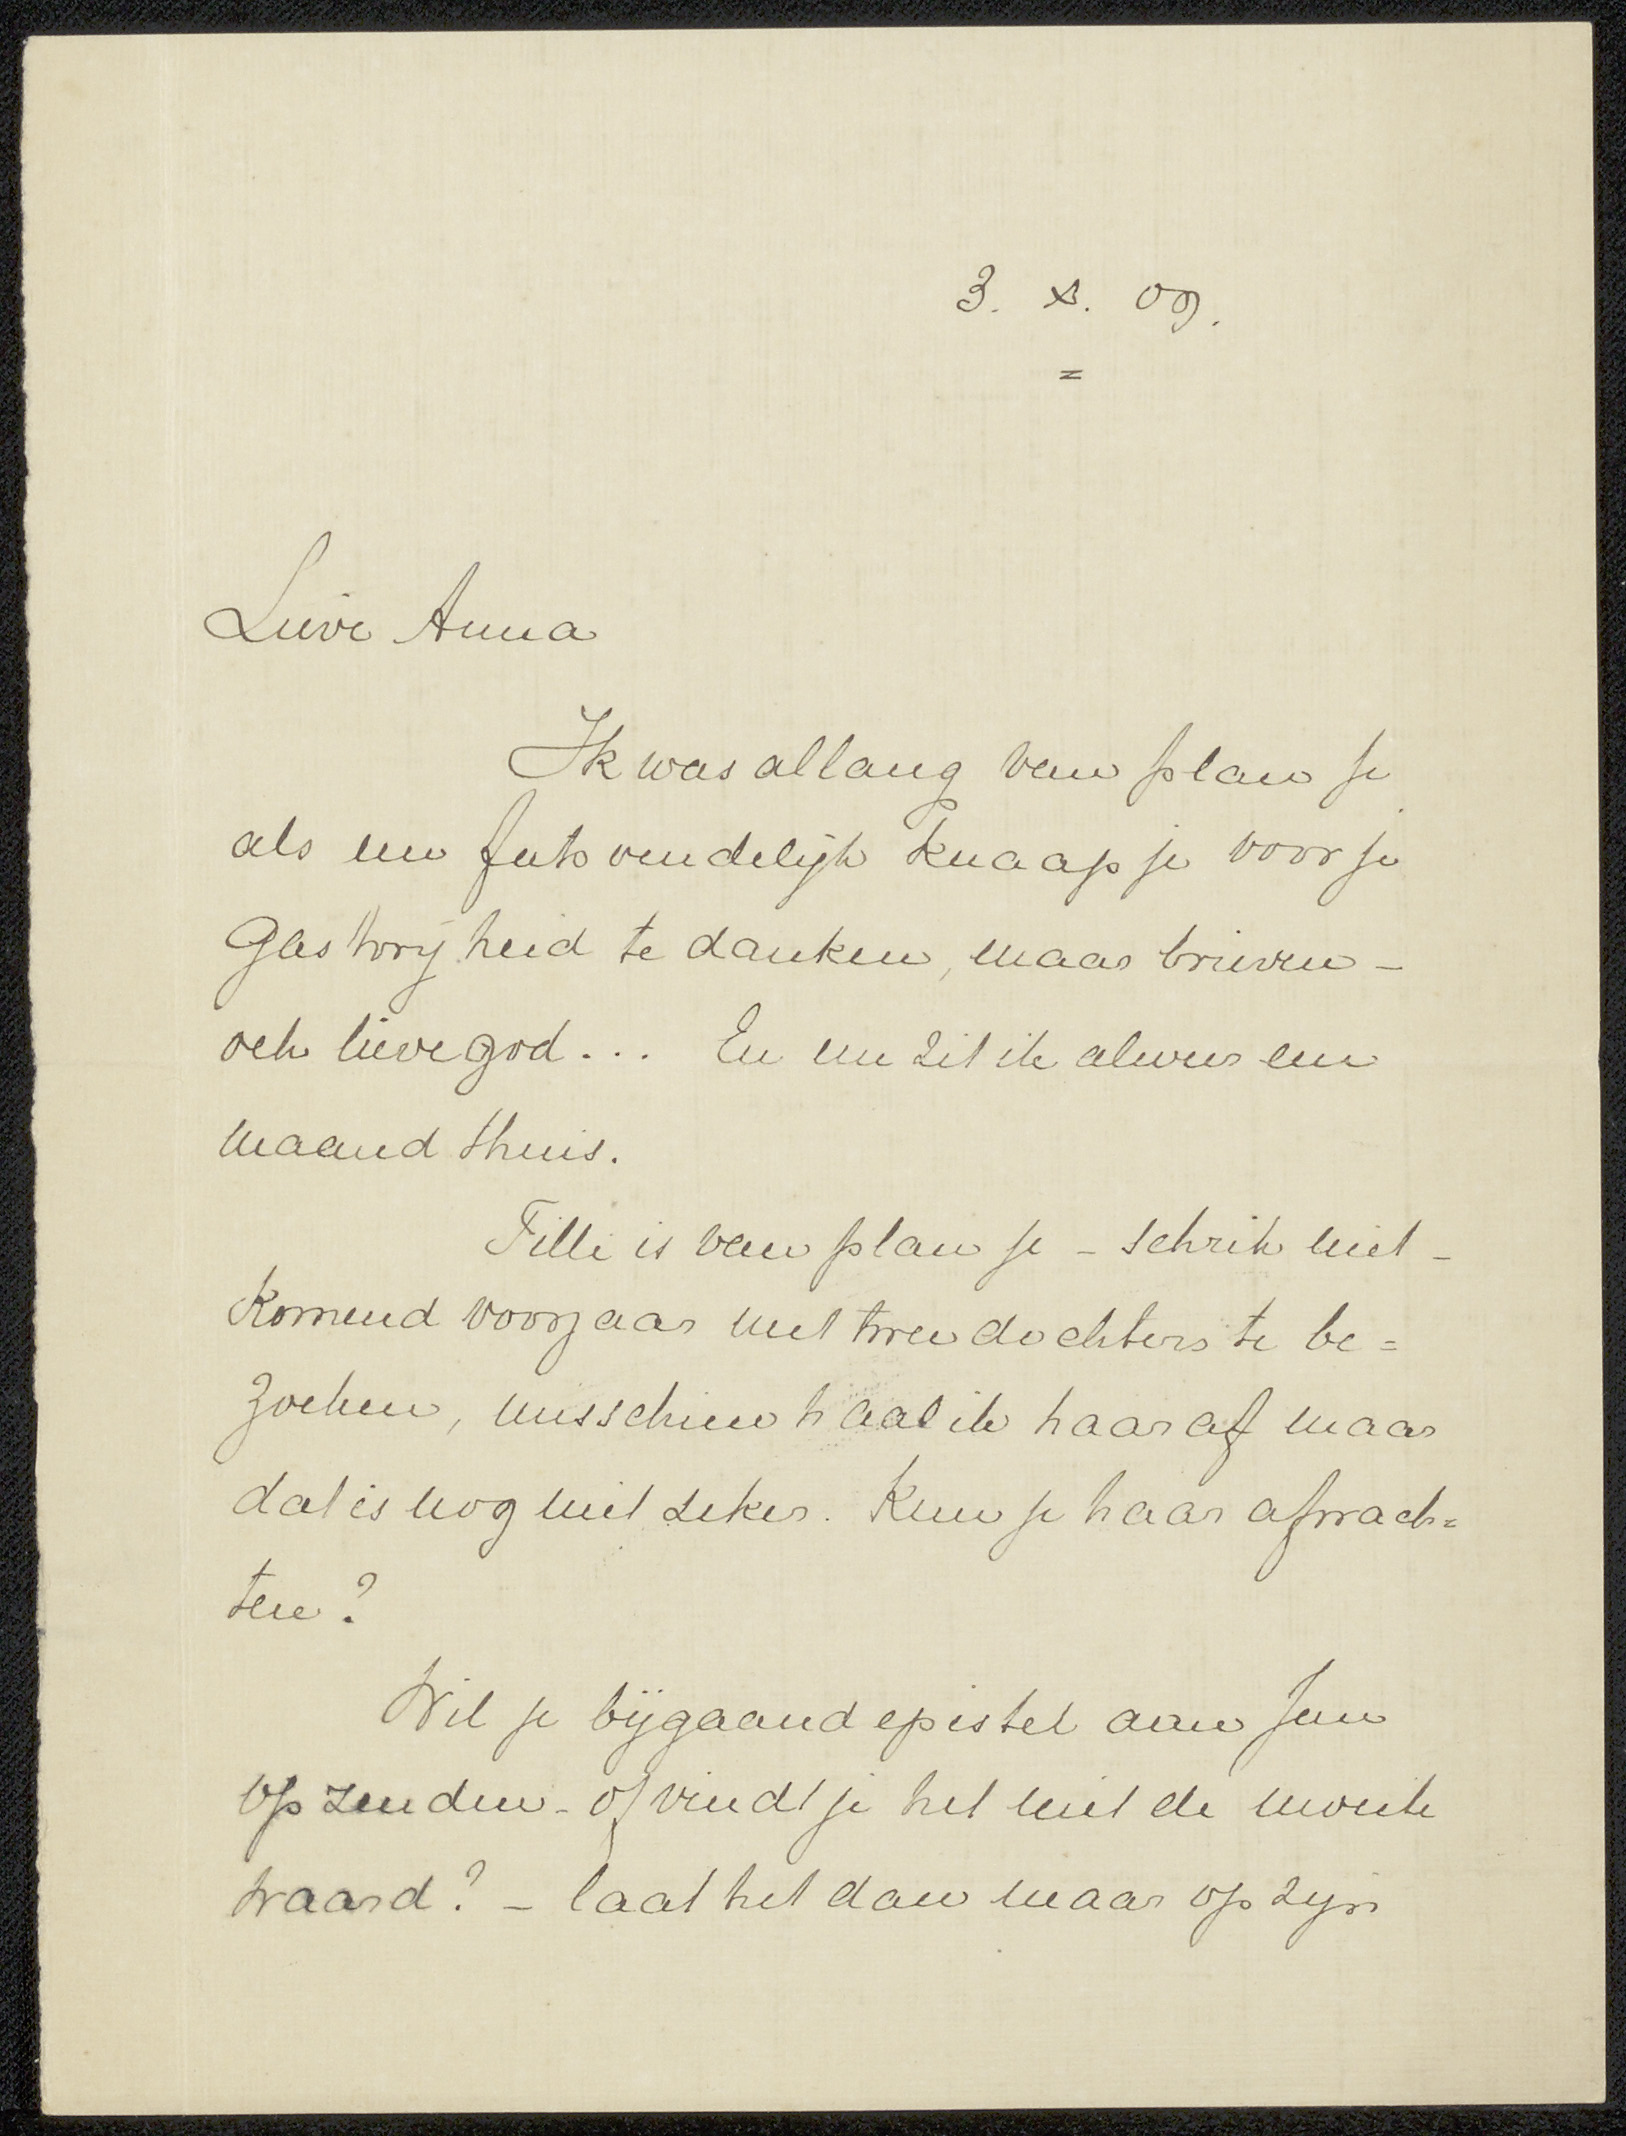 3. X. 09.
=
Lieve Anna
Ik was allang van plan je
als een fatsoendelijk knaapje voor je
Gastvrijheid te danken, maar brieven -
och lieve god... En nu zit ik alweer een
maand thuis.
Tilli is van plan je - schrik niet -
komend voorjaar met twee dochters te be=
zoeken, misschien haal ik haar af maar
dat is nog niet zeker. Kun je haar afwach=
ten?
Wil je bijgaand epistel aan Jan
op zenden - of vindt je het niet de moeite
waard? - laat het dan maar op zijn